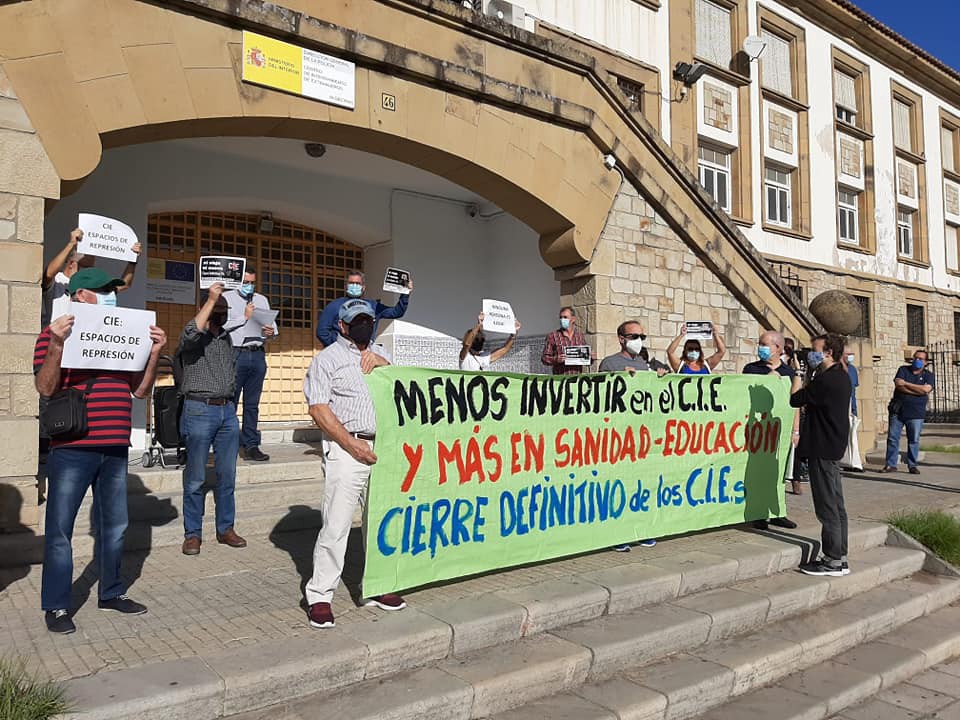 MINISTERIO
DEL INTERIOR
DIRECCIÓN GENERAL
DE LA POLICÍA
CENTRO
DE INTERNAMIENTO
DE EXTRANJEROS
46
CIE
ESPACIOS DE
REPRESIÓN
CIE:
ESPACIOS DE
REPRESIÓN
CIE
NINGUNA
PERSONA ES
ILEGAL
MENOS INVERTIR en el C.I.E.
Y MÁS EN SANIDAD-EDUCACIÓN
CIERRE DEFINITIVO de los C.I.E.s